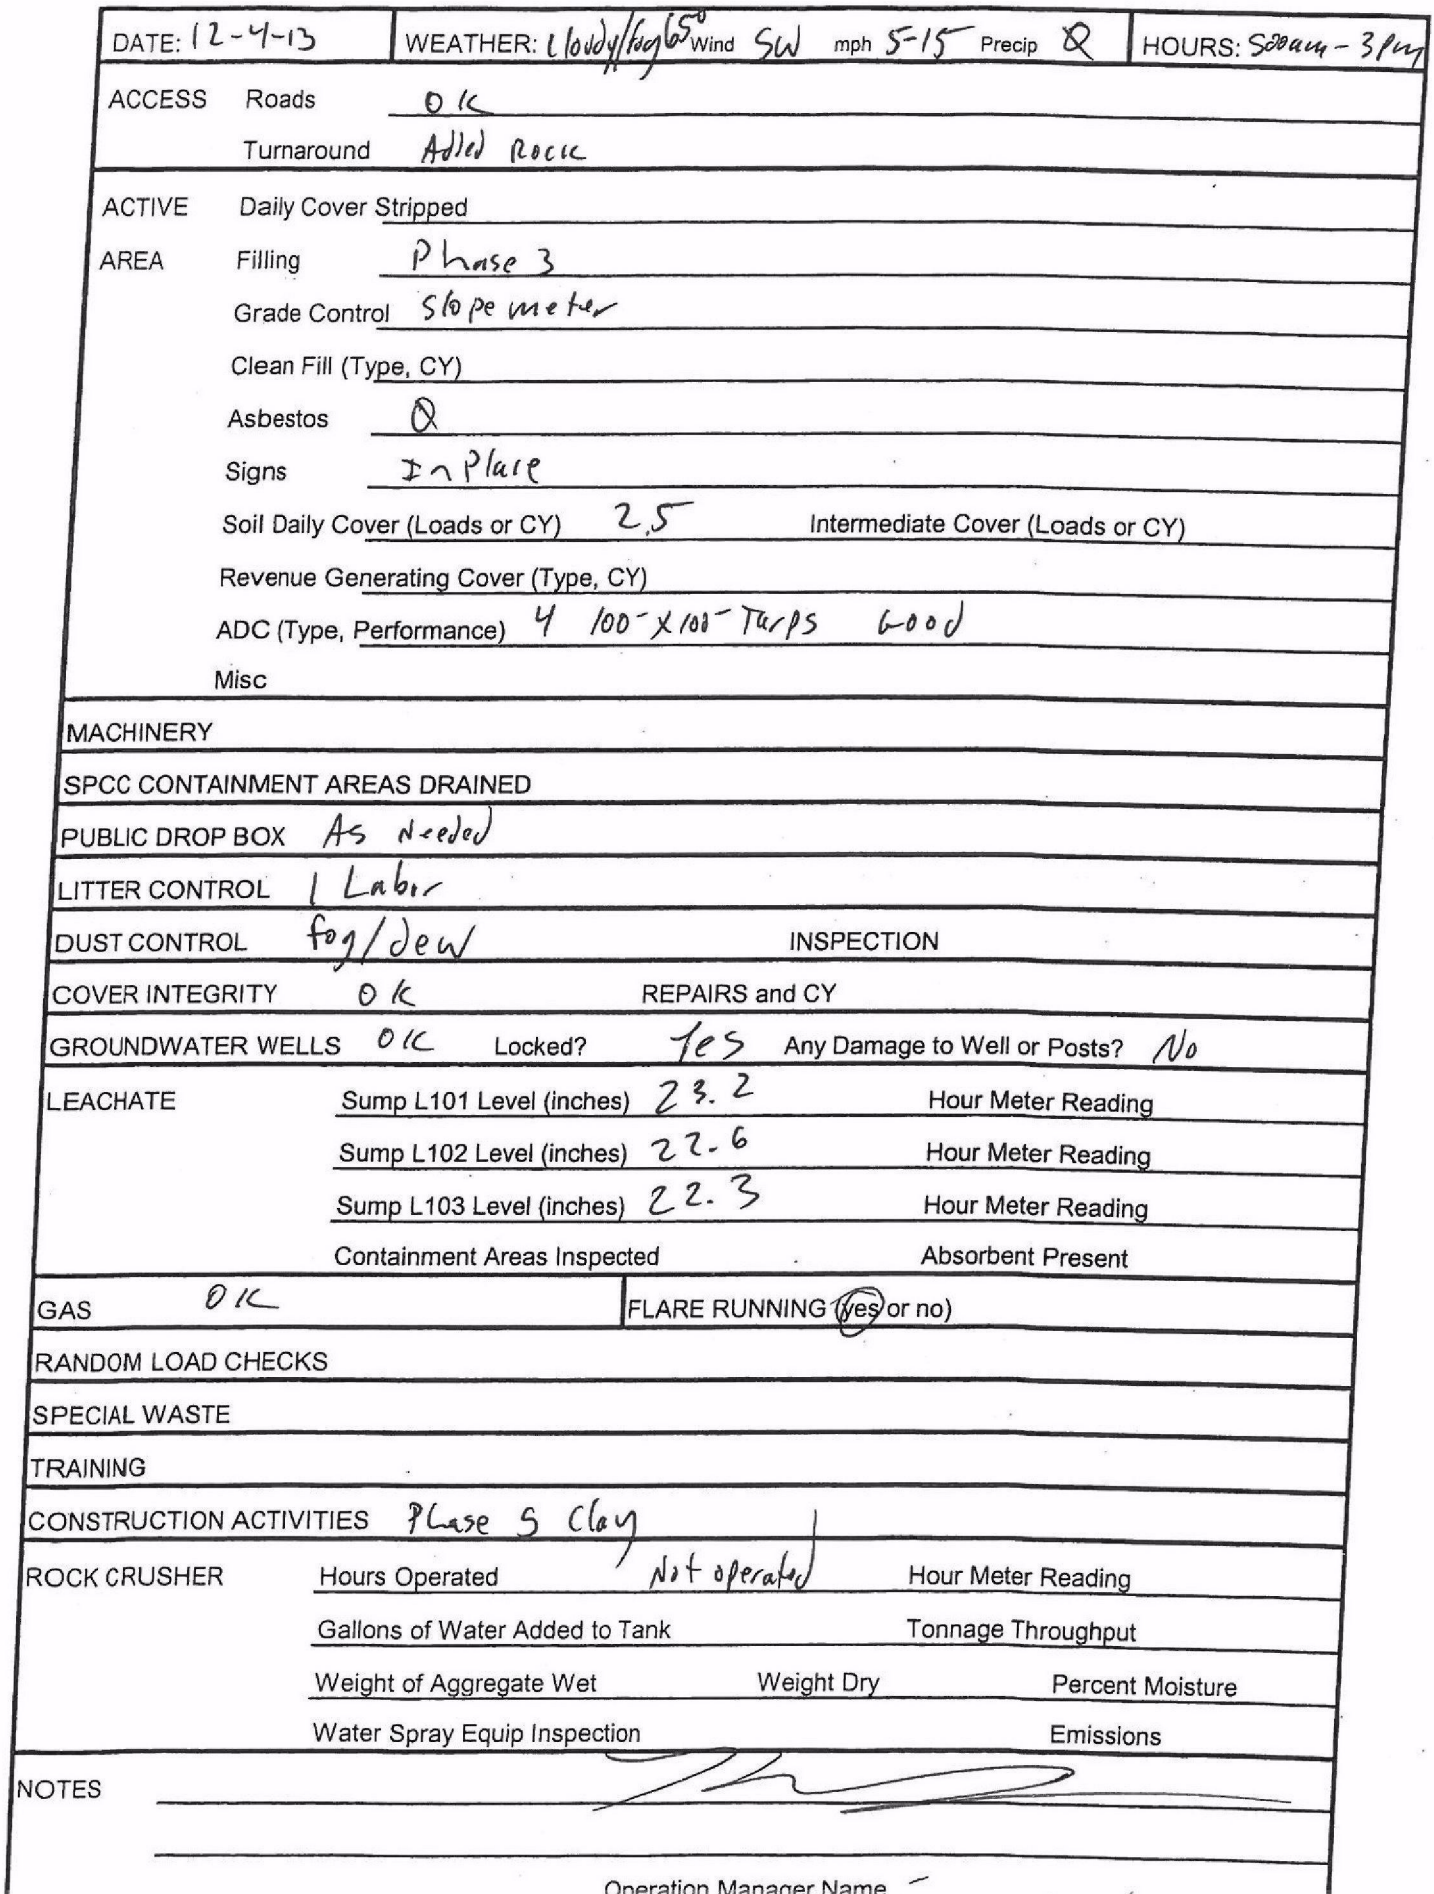 DATE: 12-4-13 WEATHER: Cloudy/fog 65° Wind SW mph 5-15 Precip Ø HOURS: 500am - 3pm
ACCESS Roads OK
Turnaround Added Rock
ACTIVE Daily Cover Stripped
AREA Filling Phase 3
Grade Control Slope meter
Clean Fill (Type, CY)
Asbestos Ø
Signs In Place
Soil Daily Cover (Loads or CY) 2.5 Intermediate Cover (Loads or CY)
Revenue Generating Cover (Type, CY)
ADC (Type, Performance) 4 100-x100- Tarps Good
Misc
MACHINERY
SPCC CONTAINMENT AREAS DRAINED
PUBLIC DROP BOX As Needed
LITTER CONTROL 1 Labor
DUST CONTROL fog/dew INSPECTION
COVER INTEGRITY OK REPAIRS and CY
GROUNDWATER WELLS OK Locked? Yes Any Damage to Well or Posts? No
LEACHATE Sump L101 Level (inches) 23.2 Hour Meter Reading
Sump L102 Level (inches) 22.6 Hour Meter Reading
Sump L103 Level (inches) 22.3 Hour Meter Reading
Containment Areas Inspected Absorbent Present
GAS OK FLARE RUNNING (yes or no)
RANDOM LOAD CHECKS
SPECIAL WASTE
TRAINING
CONSTRUCTION ACTIVITIES Phase 5 Clay
ROCK CRUSHER Hours Operated Not operated Hour Meter Reading
Gallons of Water Added to Tank Tonnage Throughput
Weight of Aggregate Wet Weight Dry Percent Moisture
Water Spray Equip Inspection Emissions
NOTES
Operation Manager Name